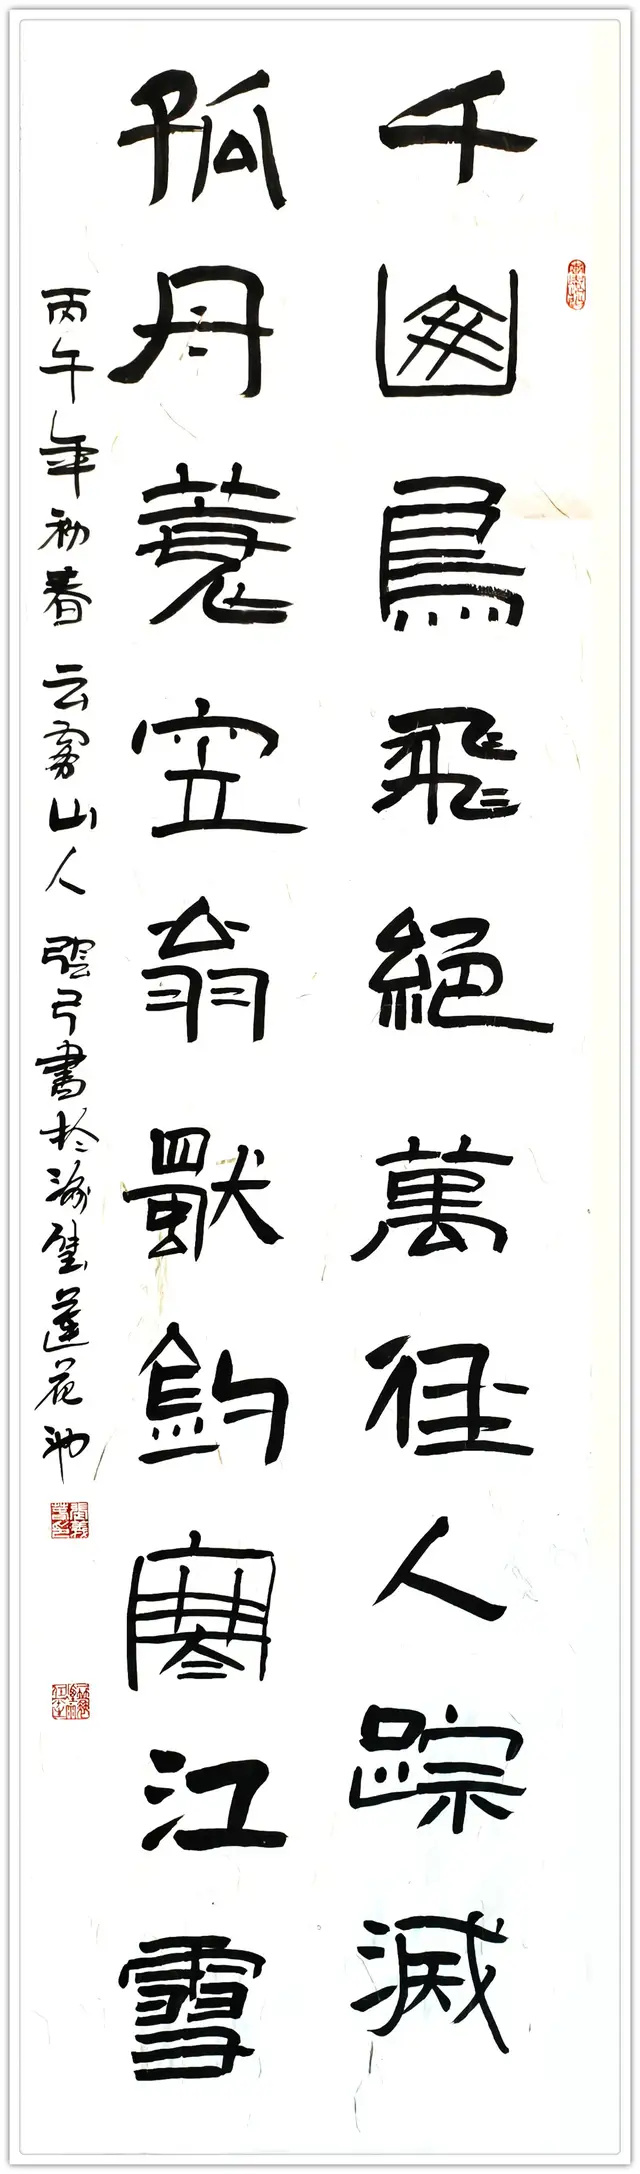 千山鳥飛絕萬徑人踪滅
孤舟蓑笠翁獨釣寒江雪
丙午年初春云雾山人張弓書於渝璧蓮花池